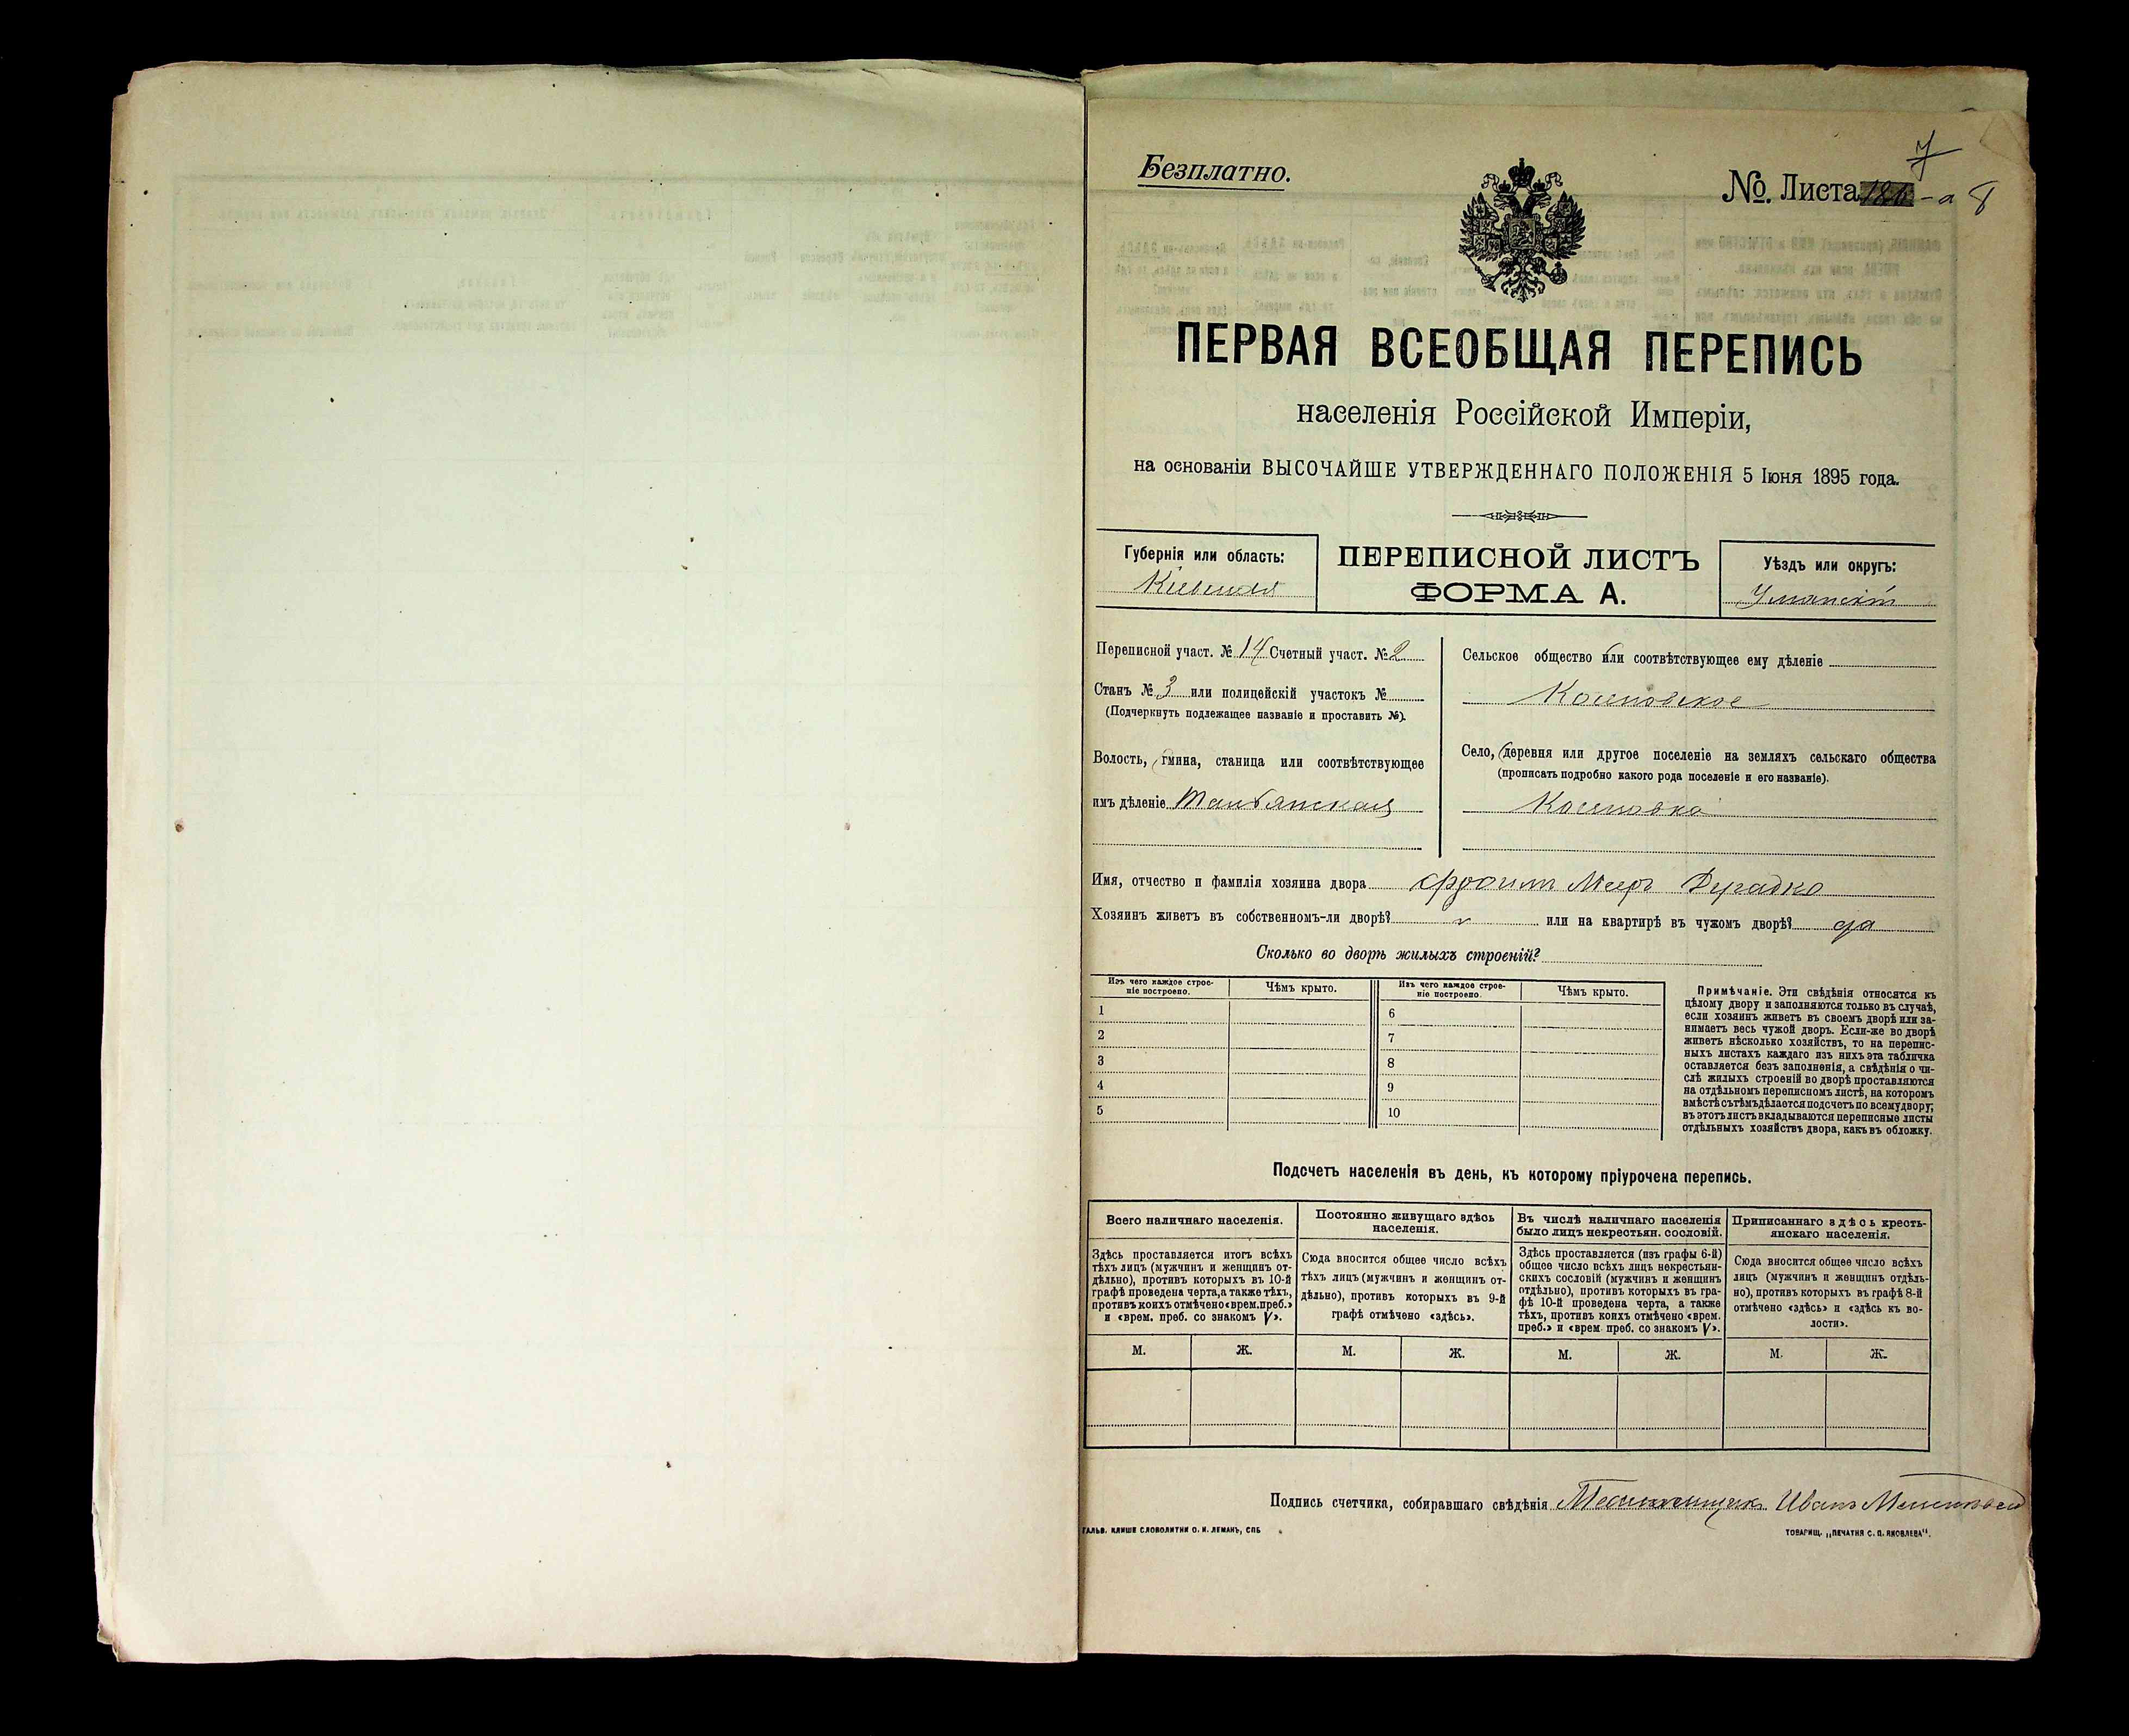 Безплатно.
№. Листа 186 - а 8
7
ПЕРВАЯ ВСЕОБЩАЯ ПЕРЕПИСЬ
населенія Россійской Имперіи,
на основаніи ВЫСОЧАЙШЕ УТВЕРЖДЕННАГО ПОЛОЖЕНІЯ 5 Іюня 1895 года.
Губернія или область:
Кіевская
ПЕРЕПИСНОЙ ЛИСТЪ
ФОРМА А.
Уѣздъ или округъ:
Уманскій
Переписной участ. № 14 Счетный участ. № 2
Станъ № 3 или полицейскій участокъ №
(Подчеркнуть подлежащее названіе и проставить №).
Волость, гмина, станица или соотвѣтствующее
имъ дѣленіе Тальянская
Сельское общество или соотвѣтствующее ему дѣленіе
Косеновское
Село, деревня или другое поселеніе на земляхъ сельскаго общества
(прописать подробно какого рода поселеніе и его названіе).
Косеновка
Имя, отчество и фамилія хозяина двора Меер
Хозяинъ живетъ въ собственномъ-ли дворѣ? или на квартирѣ въ чужомъ дворѣ? да
Сколько во дворѣ жилыхъ строеній?
Изъ чего каждое строе-
ніе построено.
Чѣмъ крыто.
Изъ чего каждое строе-
ніе построено.
Чѣмъ крыто.
1
2
3
4
5
6
7
8
9
10
Примѣчаніе. Эти свѣдѣнія относятся къ
цѣлому двору и заполняются только въ случаѣ,
если хозяинъ живетъ въ своемъ дворѣ или за-
нимаетъ весь чужой дворъ. Если-же во дворѣ
живетъ нѣсколько хозяйствъ, то на перепис-
ныхъ листахъ каждаго изъ нихъ эта табличка
оставляется безъ заполненія, а свѣдѣнія о чи-
слѣ жилыхъ строеній во дворѣ проставляются
на отдѣльномъ переписномъ листѣ, на которомъ
вмѣстѣ съ тѣмъ дѣлается подсчетъ по всему двору;
въ этотъ листъ вкладываются переписные листы
отдѣльныхъ хозяйствъ двора, какъ въ обложку.
Подсчетъ населенія въ день, къ которому пріурочена перепись.
Всего наличнаго населенія.
Здѣсь проставляется итогъ всѣхъ
тѣхъ лицъ (мужчинъ и женщинъ от-
дѣльно), противъ которыхъ въ 10-й
графѣ проведена черта, а также тѣхъ,
противъ коихъ отмѣчено «врем. преб.»
и «врем. преб. со знакомъ V».
Постоянно живущаго здѣсь
населенія.
Сюда вносится общее число всѣхъ
тѣхъ лицъ (мужчинъ и женщинъ от-
дѣльно), противъ которыхъ въ 9-й
графѣ отмѣчено «здѣсь».
Въ числѣ наличнаго населенія
было лицъ некрестьян. сословій.
Здѣсь проставляется (изъ графы 6-й)
общее число всѣхъ лицъ некрестьян-
скихъ сословій (мужчинъ и женщинъ
отдѣльно), противъ которыхъ въ гра-
фѣ 10-й проведена черта, а также
тѣхъ, противъ коихъ отмѣчено «врем.
преб.» и «врем. преб. со знакомъ V».
Приписаннаго здѣсь кресть-
янскаго населенія.
Сюда вносится общее число всѣхъ
лицъ (мужчинъ и женщинъ отдѣль-
но), противъ которыхъ въ графѣ 8-й
отмѣчено «здѣсь» и «здѣсь къ во-
лости».
М. Ж. М. Ж. М. Ж. М. Ж.
Подпись счетчика, собиравшаго свѣдѣнія Иванъ
ГАЛЬВ. КЛИШЕ СЛОВОЛИТНИ О. И. ЛЕМАНЪ, СПБ
ТОВАРИЩ. „ПЕЧАТНЯ С. П. ЯКОВЛЕВА“.